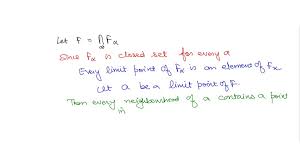 Let F = ⋂_α F_α
Since F_α is closed set for every α
Every limit point of F_α is an element of F_α
Let a be a limit point of F
Then every neighbourhood of a contains a point
in